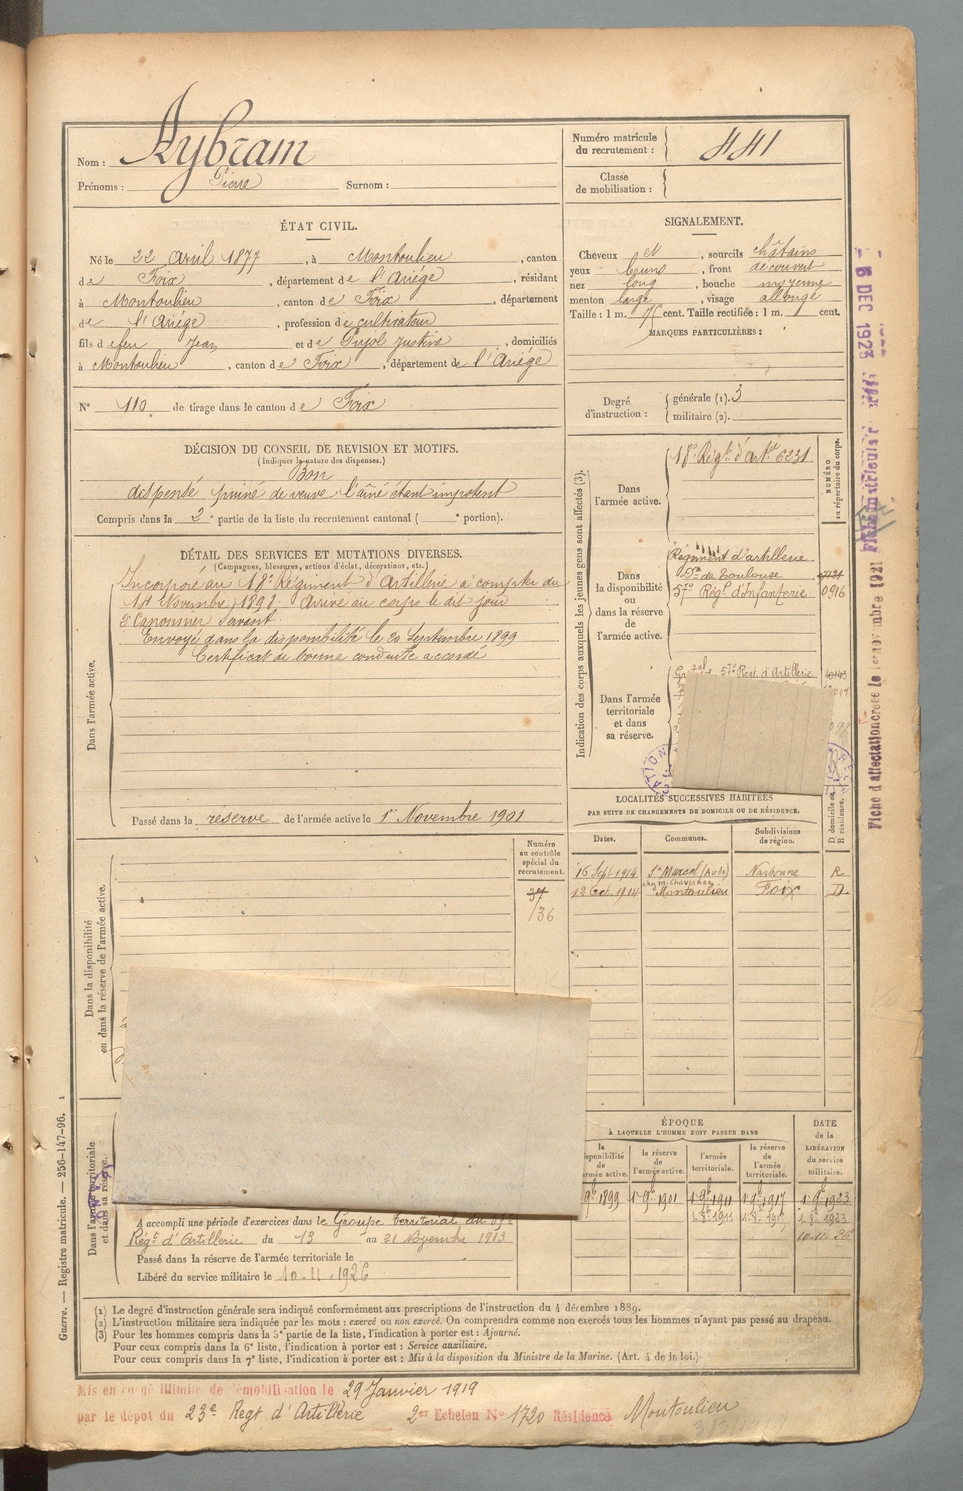 Nom : Aybram
Prénoms : Pierre Surnom :
Numéro matricule du recrutement : 441
Classe de mobilisation :
ÉTAT CIVIL.
Né le 22 Avril 1877, à Montoulieu, canton
de Foix, département de l'Ariége, résidant
à Montoulieu, canton de Foix, département
de l'Ariége, profession de cultivateur
fils de feu Jean et de Pujol Justine, domiciliés
à Montoulieu, canton de Foix, département de l'Ariége
N° 110 de tirage dans le canton de Foix
SIGNALEMENT.
Cheveux et, sourcils châtains
yeux bruns, front découvert
nez long, bouche moyenne
menton large, visage allongé
Taille : 1 m. cent. Taille rectifiée : 1 m. cent.
MARQUES PARTICULIÈRES :
Degré d'instruction :
générale (1). 3
militaire (2).
DÉCISION DU CONSEIL DE REVISION ET MOTIFS.
(Indiquer la nature des dispenses.)
Bon
dispensé puiné de veuve l'aîné étant impotent
Compris dans la 2e partie de la liste du recrutement cantonal ( e portion).
DÉTAIL DES SERVICES ET MUTATIONS DIVERSES.
(Campagnes, blessures, actions d'éclat, décorations, etc.)
Dans l'armée active.
Incorporé au 18e Régiment d'Artillerie à compter du
14 Novembre 1898. Arrivé au corps le dit jour
2e Canonnier Servant.
Envoyé dans la disponibilité le 20 Septembre 1899
Certificat de bonne conduite accordé
Passé dans la réserve de l'armée active le 1er Novembre 1901
Indication des corps auxquels les jeunes gens sont affectés (3).
NUMÉRO au répertoire du corps.
Dans l'armée active.
18e Régt d'Artie 6231
Dans la disponibilité ou dans la réserve de l'armée active.
Régiment d'artillerie
de Toulouse
57e Régt d'Infanterie 0916
Dans l'armée territoriale et dans sa réserve.
57e Régt d'Artillerie
LOCALITÉS SUCCESSIVES HABITÉES
PAR SUITE DE CHANGEMENTS DE DOMICILE OU DE RÉSIDENCE.
Dates. Communes. Subdivisions de région. D domicile ou R résidence.
16 Sept 1914 St Marcel (Aude) Narbonne R
12 Oct. 1914 Montoulieu Foix D.
Numéro au contrôle spécial du recrutement.
37
136
Dans la disponibilité ou dans la réserve de l'armée active.
Dans l'armée territoriale et dans sa réserve.
ÉPOQUE
À LAQUELLE L'HOMME DOIT PASSER DANS
la disponibilité de l'armée active.
la réserve de l'armée active.
l'armée territoriale.
la réserve de l'armée territoriale.
DATE de la LIBÉRATION du service militaire.
9bre 1899 1er 9bre 1901 1er 9bre 1911 1er 9bre 1917 1er 9bre 1923
10.11.26
A accompli une période d'exercices dans le Groupe territorial du 57e
Régt d'Artillerie du 13 au 21 Novembre 1913
Passé dans la réserve de l'armée territoriale le
Libéré du service militaire le 10.11.1926
(1) Le degré d'instruction générale sera indiqué conformément aux prescriptions de l'instruction du 4 décembre 1889.
(2) L'instruction militaire sera indiquée par les mots : exercé ou non exercé. On comprendra comme non exercés tous les hommes n'ayant pas passé au drapeau.
(3) Pour les hommes compris dans la 5e partie de la liste, l'indication à porter est : Ajourné.
Pour ceux compris dans la 6e liste, l'indication à porter est : Service auxiliaire.
Pour ceux compris dans la 7e liste, l'indication à porter est : Mis à la disposition du Ministre de la Marine. (Art. 4 de la loi.)
Mis en congé illimité de démobilisation le 29 Janvier 1919
par le dépot du 23e Regt d'Artillerie 2er Echelon N° 1720 Résidence Montoulieu
Guerre. — Registre matricule. — 256-147-96.
DEC 1923
Fiche d'affectation créée le